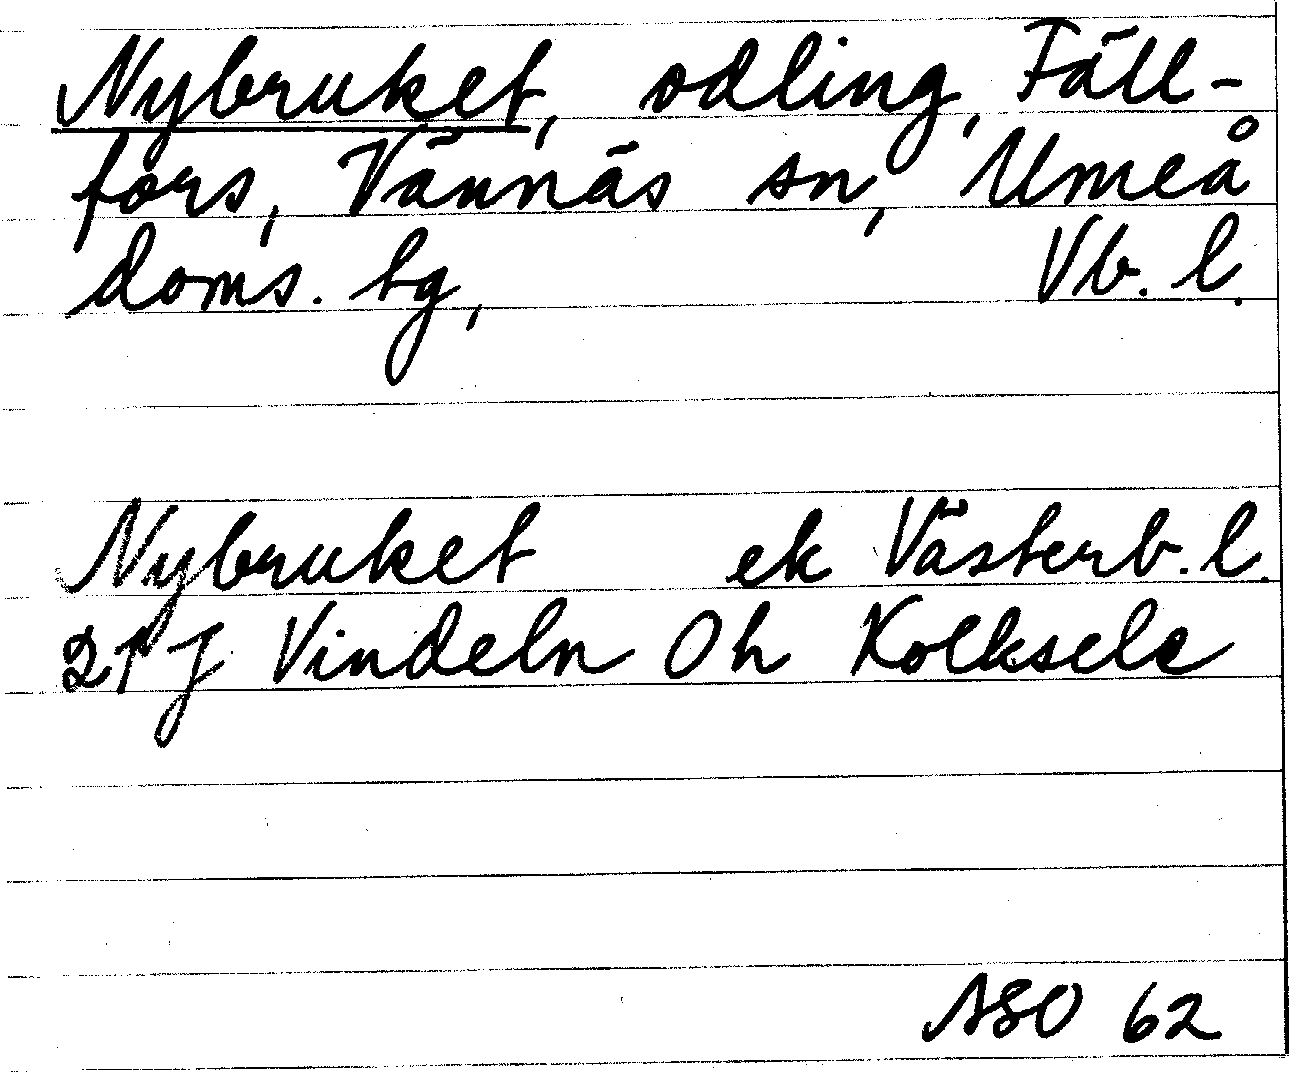 Nybruket, odling, Fäll-
fors, Vännäs sn, Umeå
doms. tg, Vb. l.
Nybruket ek Västerb. l.
21 J Vindeln Oh Kolksele
ASO 62